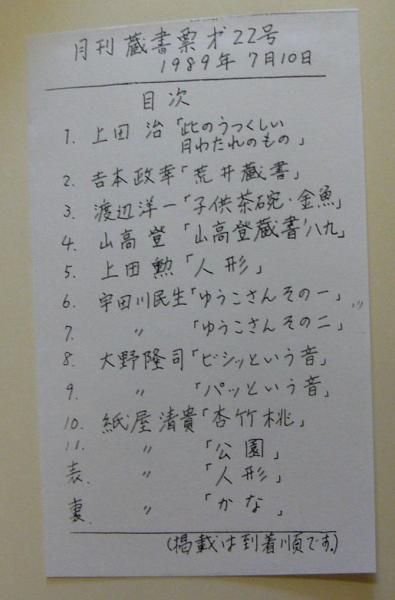 月刊 蔵書票 才22号
1989年 7月10日
目次
1. 上田 治「此のうつくしい
月わたれのもの」
2. 吉本政幸「荒井蔵書」
3. 渡辺洋一「子供茶碗・金魚」
4. 山高登 「山高登蔵書'八九」
5. 上田勲「人形」
6. 宇田川民生「ゆうこさんその一」
7. 〃 「ゆうこさんその二」
8. 大野隆司「ビシッという音」
9. 〃 「パッという音」
10. 紙屋清貴「杏竹桃」
11. 〃 「公園」
表. 〃 「人形」
裏. 〃 「かな」
(掲載は到着順です。)